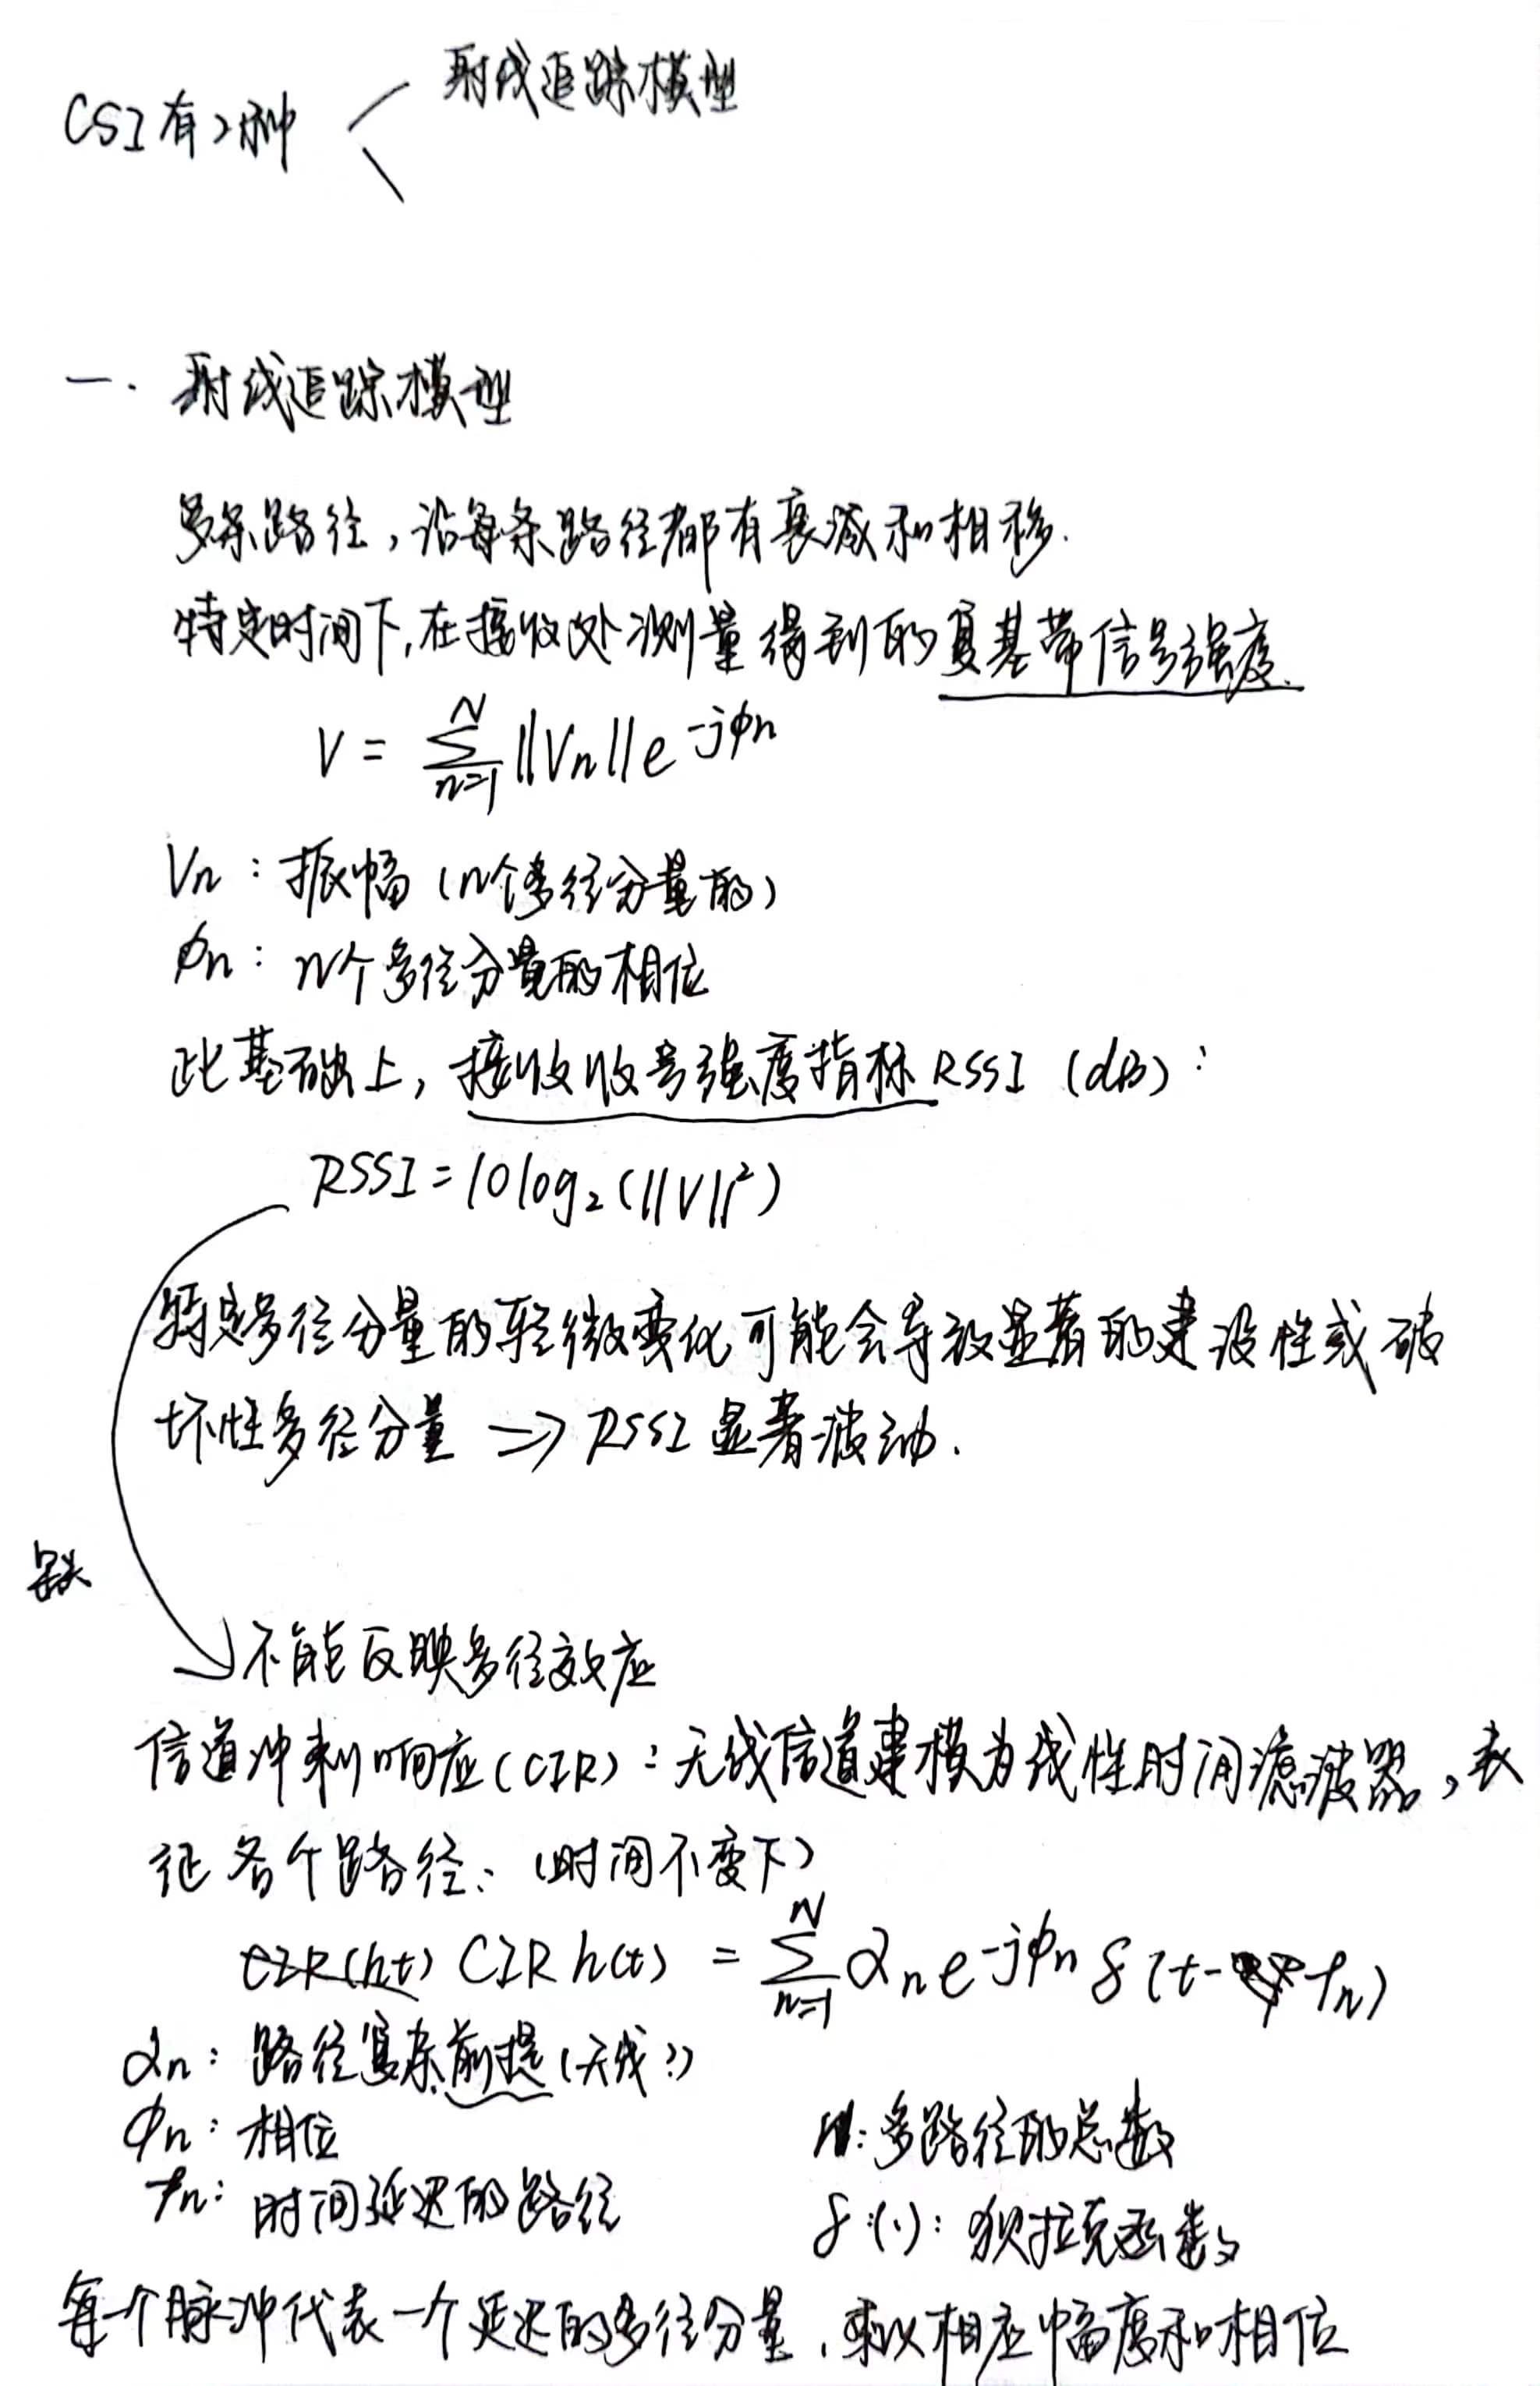 射线追踪模型
CSI有2种
一. 射线追踪模型
多条路径,沿每条路径都有衰减和相移.
特定时间下,在接收处测量得到的复基带信号强度.
V = \sum_{n=1}^{N} ||Vn|| e^{-jϕn}
Vn : 振幅 (n个多径分量的)
ϕn : n个多径分量的相位
此基础上, 接收收号强度指标RSSI (dB) :
RSSI = 10 log₂(||V||²)
特定多径分量的轻微变化可能会导致显著的建设性或破
坏性多径分量 => RSSI 显著波动.
缺
不能反映多径效应
信道冲刺响应(CIR) : 无线信道建模为线性时间滤波器,表
征各个路径: (时间不变下)
CIR(ht) CIR h(t) = \sum_{n=1}^{N} αn e^{-jϕn} δ(t- tn)
αn : 路径复杂前提(天线?)
ϕn : 相位 n: 多路径的总数
tn : 时间延迟的路径
δ:(·): 狄拉克函数
每一个脉冲代表一个延迟的多径分量, 乘以相应幅度和相位